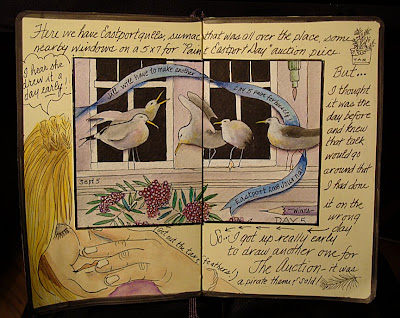 Here we have Eastport gulls, sumac that was all over the place, some
nearby windows on a 5x7 for "Paint Eastport Day" auction piece.
I hear she
drew it a
day early!
We will have to make another
Sept 5
Eastport 2009 Journal
DAVE
But...
I thought
it was the
day before
and knew
that talk
would go
around that
I had done
it on the
wrong
day
So.. I got up really early
to draw another one for
The Auction - it was
a pirate theme & sold!
(get out the tease feathers!)